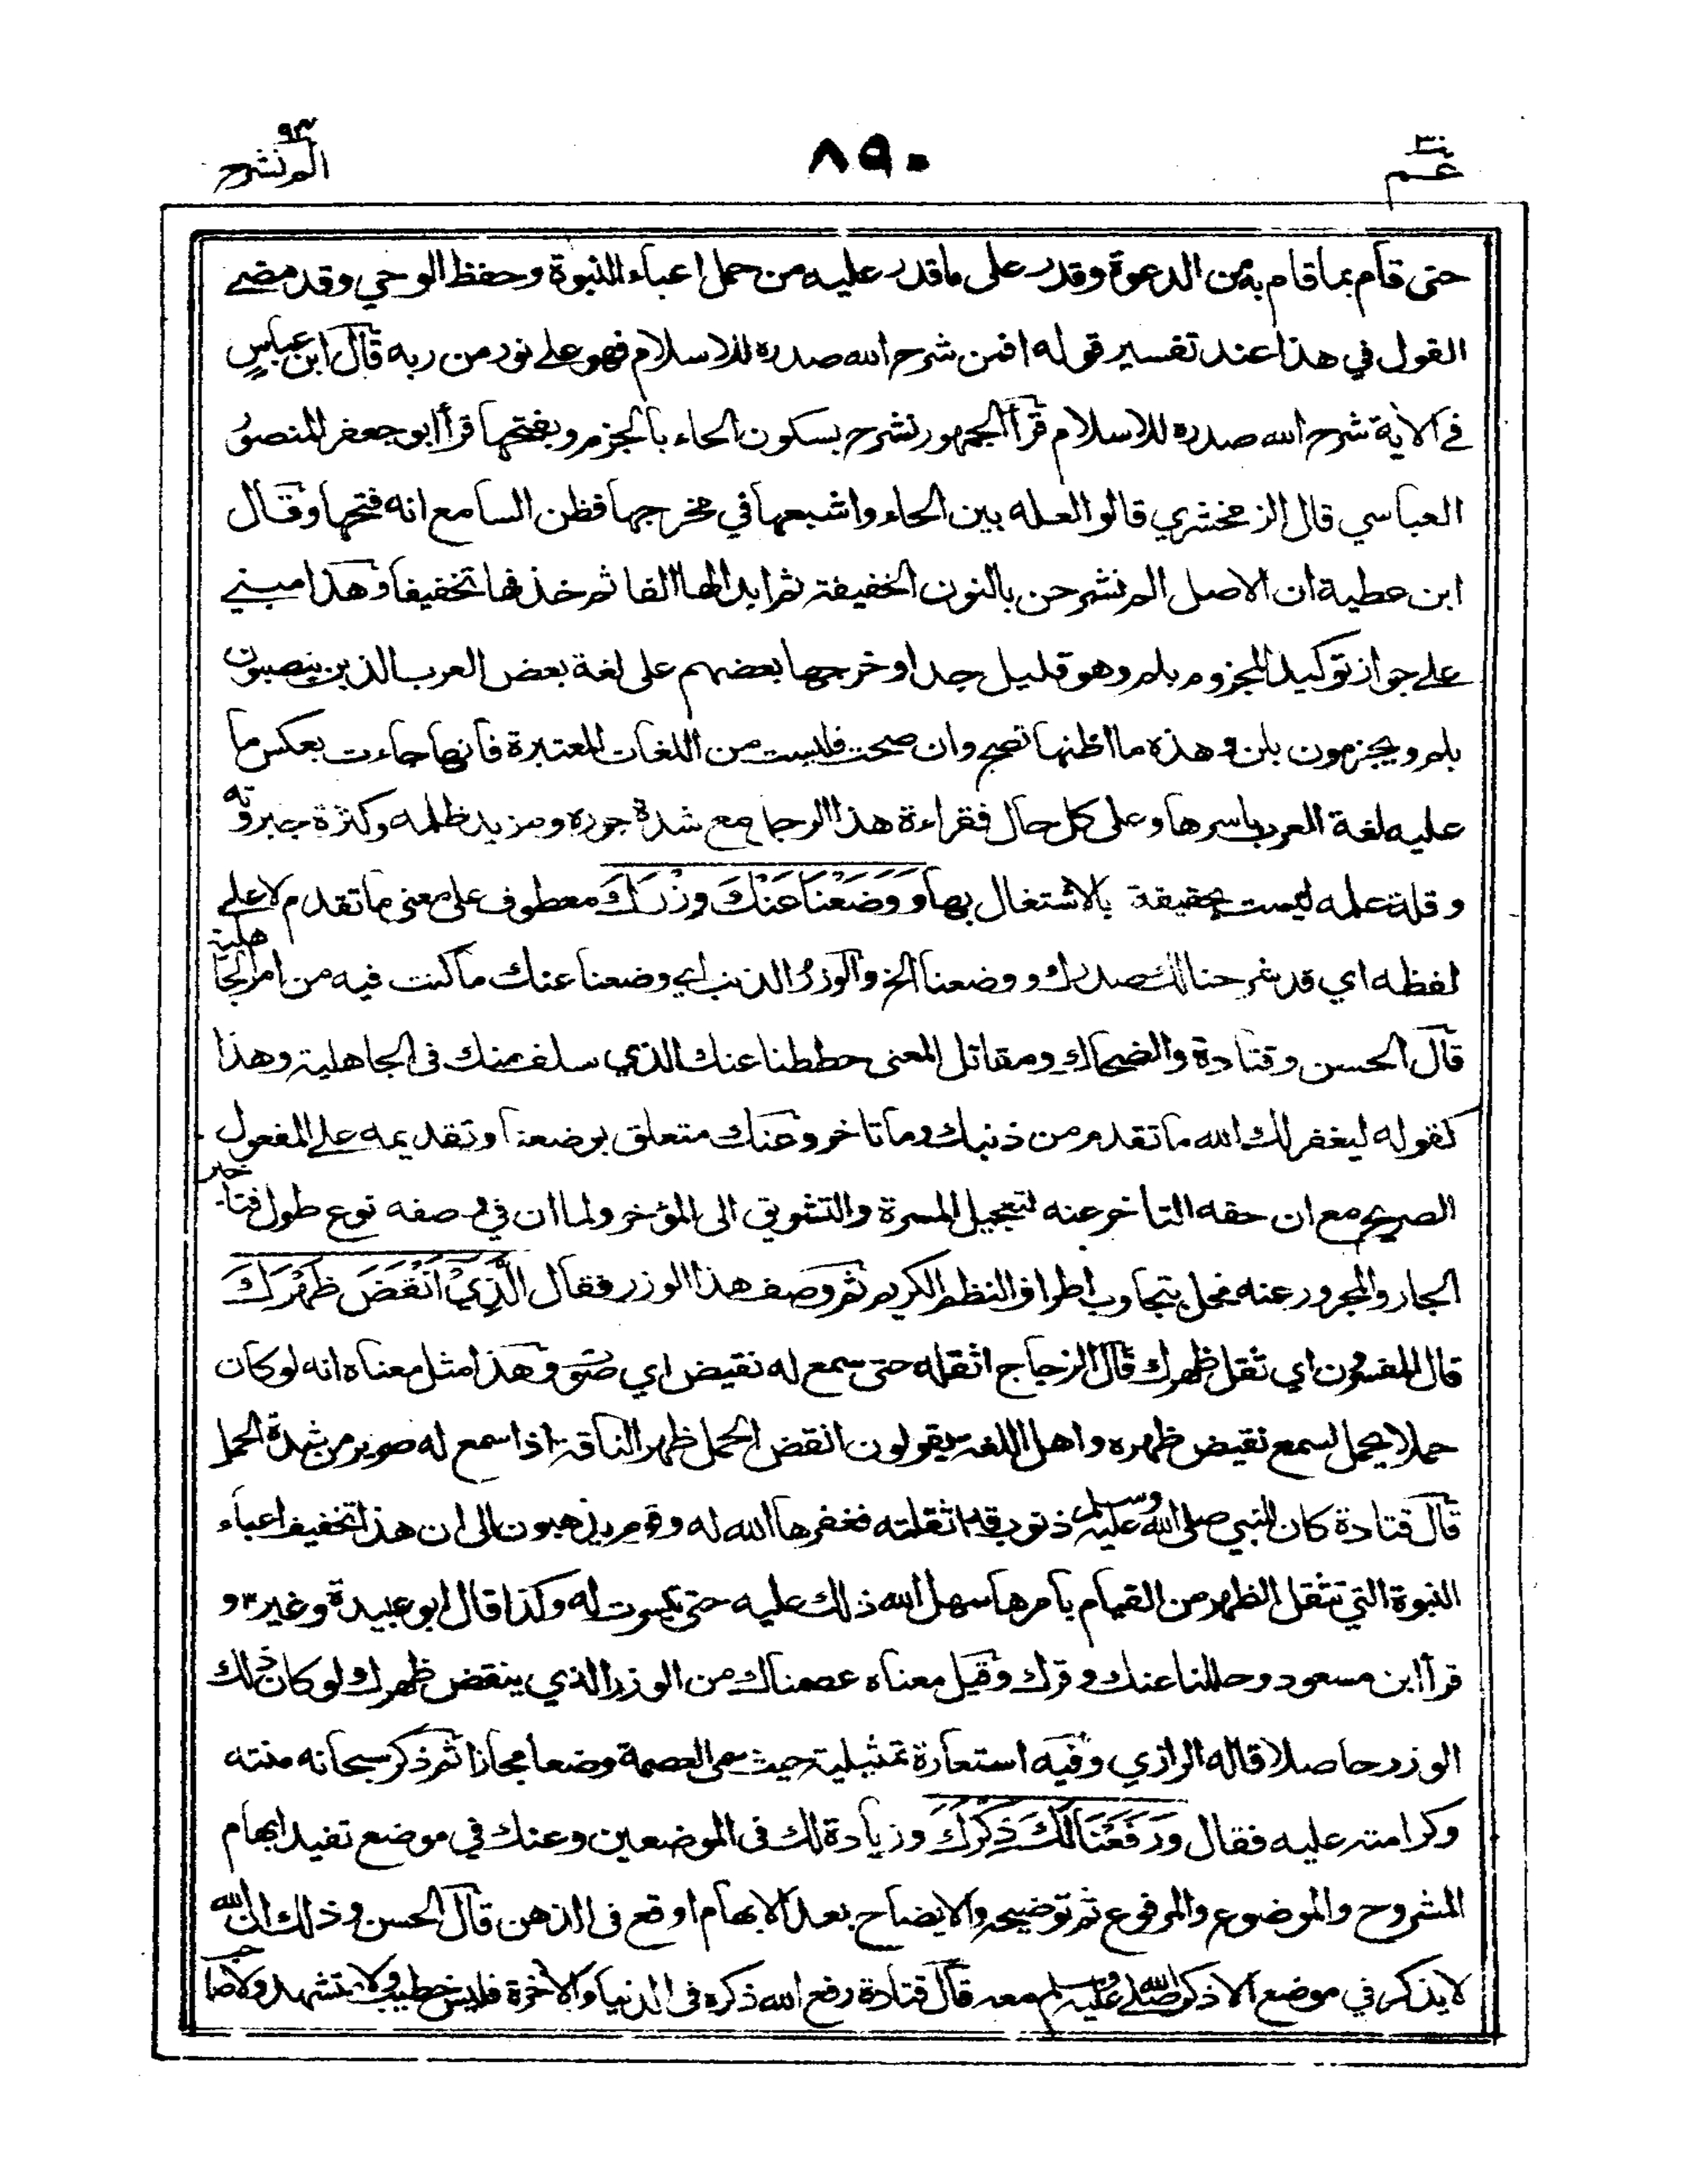 عم ٣٠
٨٩٠
الم نشرح ٩٤
حتى قام بما قام به من الدعوة وقدر على ما قدر عليه من حمل اعباء النبوة وحفظ الوحي وقد مضى
القول في هذا عند تفسير قوله افمن شرح الله صدره للاسلام فهو على نور من ربه قال ابن عباس
في الآية شرح الله صدره للاسلام قرأ الجمهور نشرح بسكون الحاء بالجزم وبفتحها قرأ ابو جعفر المنصور
العباسي قال الزمخشري قالوا لعله بين الحاء واشبعها في مخرجها فظن السامع انه فتحها وقال
ابن عطية ان الاصل الم نشرحن بالنون الخفيفة ثم ابدالها الفا ثم حذفها تخفيفا وهذا مبني
على جواز توكيد المجزوم بلم وهو قليل جدا وخرجها بعضهم على لغة بعض العرب الذين ينصبون
بلم ويجزمون بلن وهذه ما اظنها تصح وان صحت فليست من اللغات المعتبرة فانها جاءت بعكس ما
عليه لغة العرب باسرها وعلى كل حال فقراءة هذا الرجل مع شدة جوره ومزيد ظلمه وكثرة جبروته
وقلة علمه ليست بحقيقة بالاشتغال بها وَوَضَعْنَا عَنْكَ وِزْرَكَ معطوف على معنى ما تقدم لا على
لفظه اي قد شرحنا لك صدرك ووضعنا الخ والوزر الذنب اي وضعنا عنك ما كنت فيه من امر الجاهلية
قال الحسن وقتادة والضحاك ومقاتل المعنى حططنا عنك الذي سلف منك في الجاهلية وهذا
كقوله ليغفر لك الله ما تقدم من ذنبك وما تاخر وعنك متعلق بوضعنا وتقديمه على المفعول
الصريح مع ان حقه التاخر عنه لتعجيل المسرة والتشويق الى المؤخر ولما ان في وصفه نوع طول فتاخير
الجار والمجرور عنه مخل بتجاوب اطراف النظم الكريم ثم وصف هذا الوزر فقال الَّذِيْ اَنْقَضَ ظَهْرَكَ
قال المفسرون اي ثقل ظهرك قال الزجاج اثقله حتى سمع له نقيض اي صوت وهذا مثل معناه انه لو كان
حملا يحمل لسمع نقيض ظهره واهل اللغة يقولون انقض الحمل ظهر الناقة اذا سمع له صرير من شدة الحمل
قال قتادة كان للنبي صلى الله عليه وسلم ذنوب قد اثقلته فغفرها الله له وقوم يذهبون الى ان هذا تخفيف اعباء
النبوة التي تثقل الظهر من القيام بامرها سهل الله ذلك عليه حتى تيسرت له وكذا قال ابو عبيدة وغيره و
قرأ ابن مسعود وحللنا عنك وقرك وقيل معناه عصمناك من الوزر الذي ينقض ظهرك ولو كان ذلك
الوزر حاصلا قاله الرازي وفيه استعارة تمثيلية حيث سمى العصمة وضعا مجازا ثم ذكر سبحانه منته
وكرامته عليه فقال وَرَفَعْنَا لَكَ ذِكْرَكَ وزيادة لك في الموضعين وعنك في موضع تفيد ابهام
المشروح والموضوع والمرفوع ثم توضيحه والايضاح بعد الابهام اوقع في الذهن قال الحسن وذلك ان الله
لا يذكر في موضع الا ذكر صلى الله عليه وسلم معه قال قتادة رفع الله ذكره في الدنيا والآخرة فليس خطيب ولا متشهد ولا صاحب